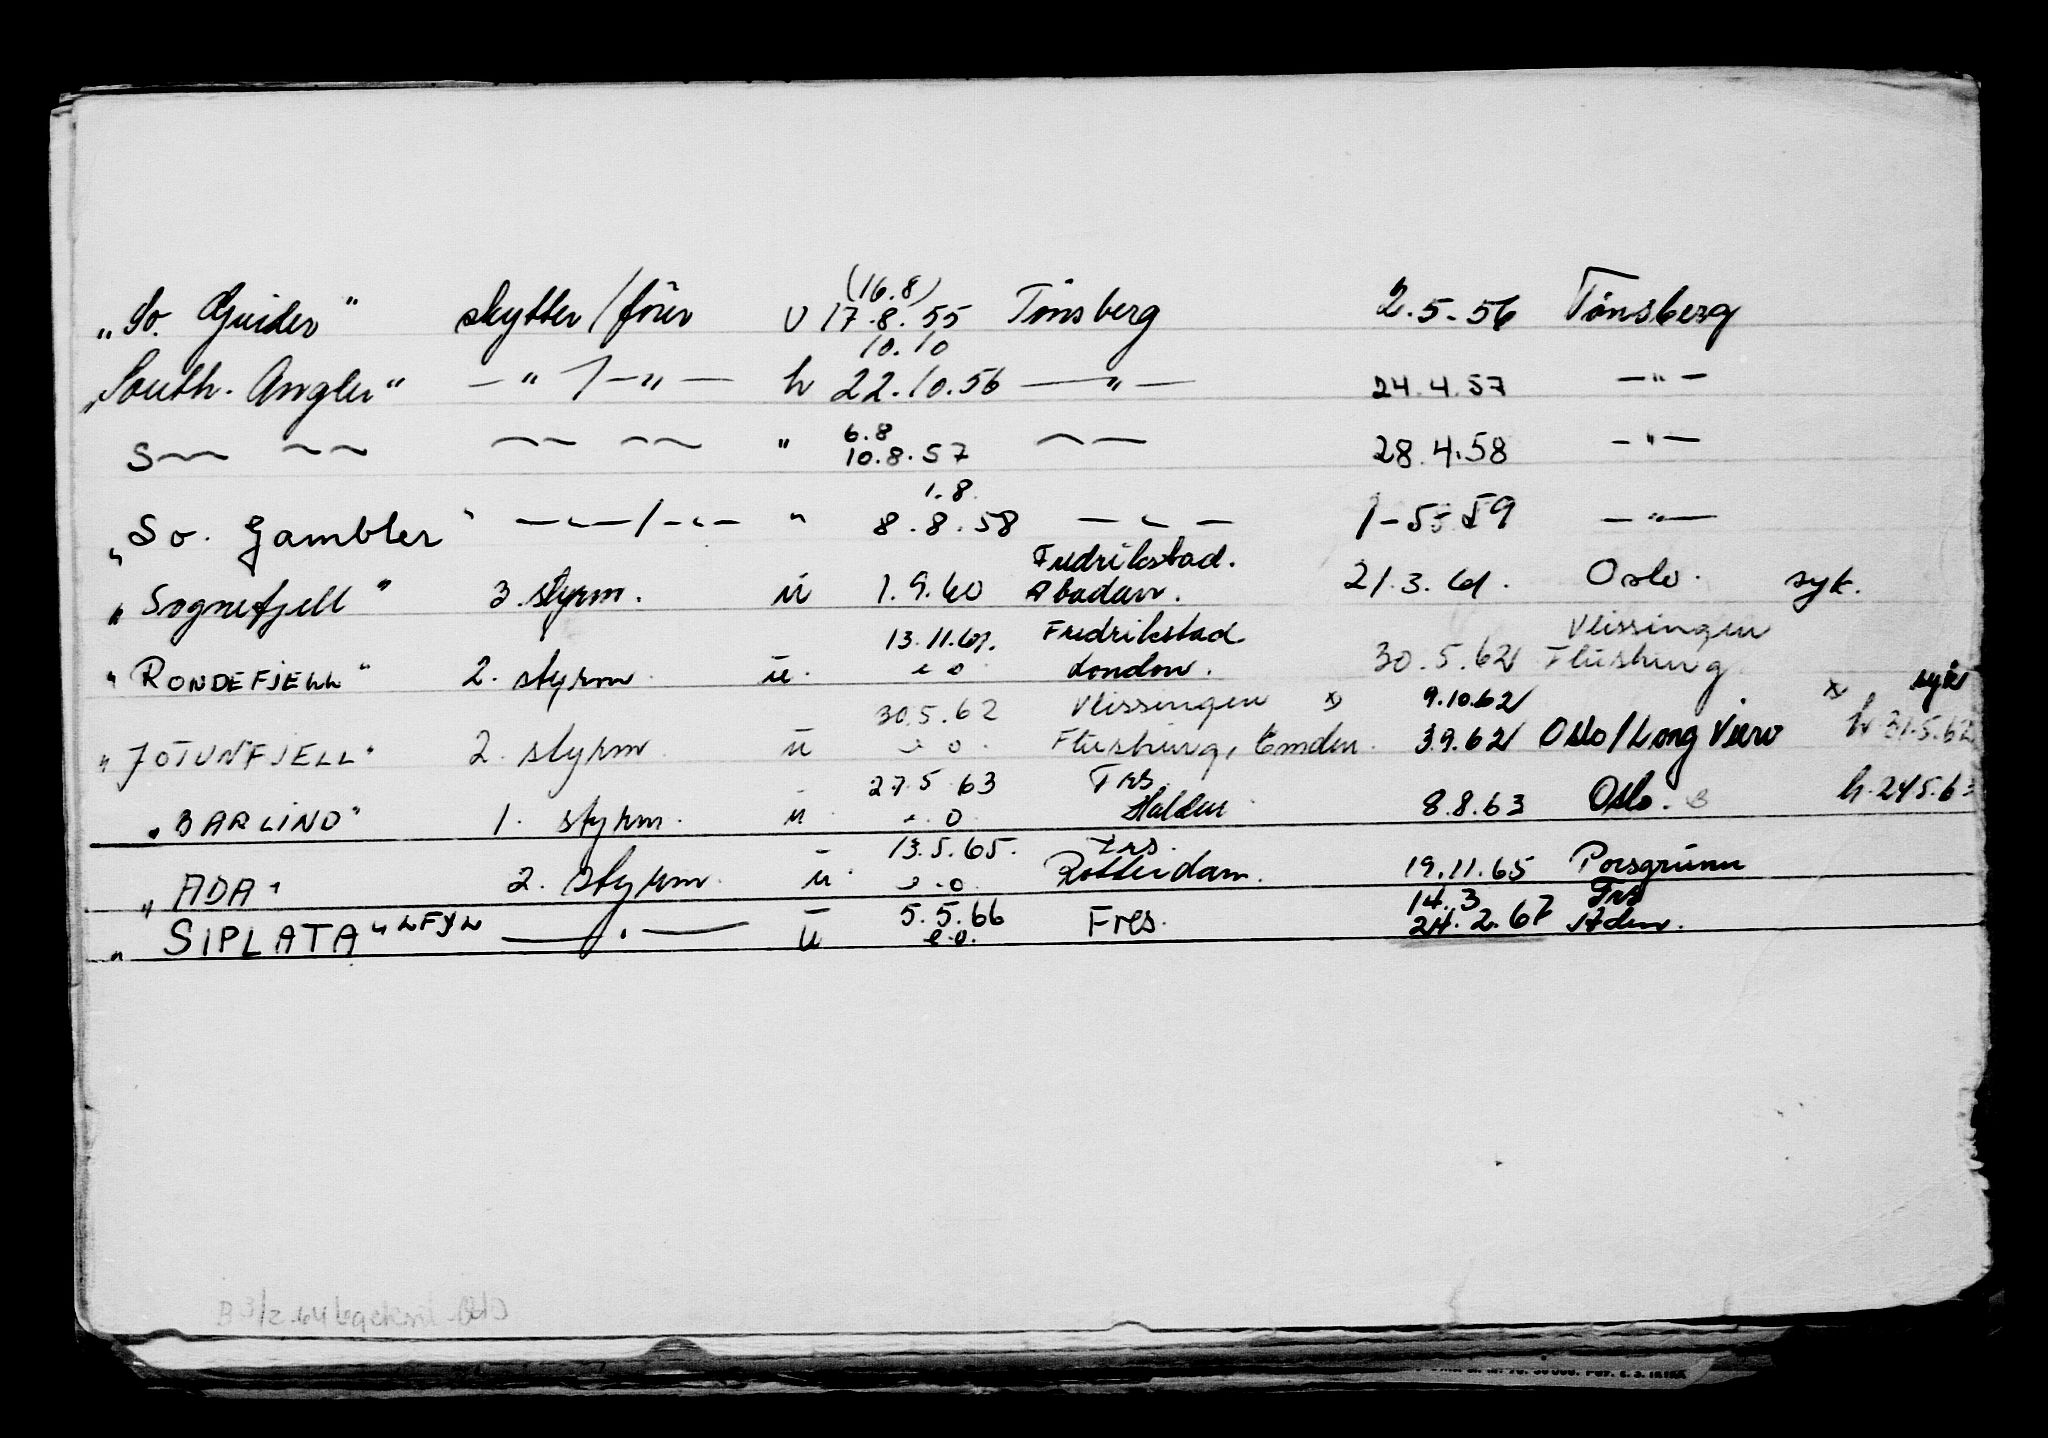 (16.8)
„So. Guider" skytter/förer U 17.8.55 Tønsberg 2.5.56 Tønsberg
10.10
„South. Angler" — " / — " — h 22.10.56 — " — 24.4.57 — " —
6.8
S— — — — " 10.8.57 — — 28.4.58 — " —
1.8
„So. Gambler" — " — / — " — " 8.8.58 — " — 1-5.59 — " —
Fredrikstad.
„Sognefjell" 3. styrm. ü 1.9.60 Abadan. 21.3.61. Oslo. syk.
13.11.61. Fredrikstad Vlissingen
"RONDEFJELL" 2. styrm. ü. e o London. 30.5.62 Flushing
30.5.62 Vlissingen x 9.10.62 x syk
"JOTUNFJELL" 2. styrm. ü e o. Flushing, Emden. 3.9.62 Oslo/Long View h 31.5.62
27.5.63 Frs.
"BARLIND" 1. styrm. ü e.o Halden 8.8.63 Oslo. h.24.5.63
13.5.65. Frs.
„ADA" 2. styrm. ü. e.o Rotterdam. 19.11.65 Porsgrunn
5.5.66 14.3 Frs
„SIPLATA" LFYL — " — ü e.o. Fres. 24.2.67 Aden.
B 3/2.64 Oslo